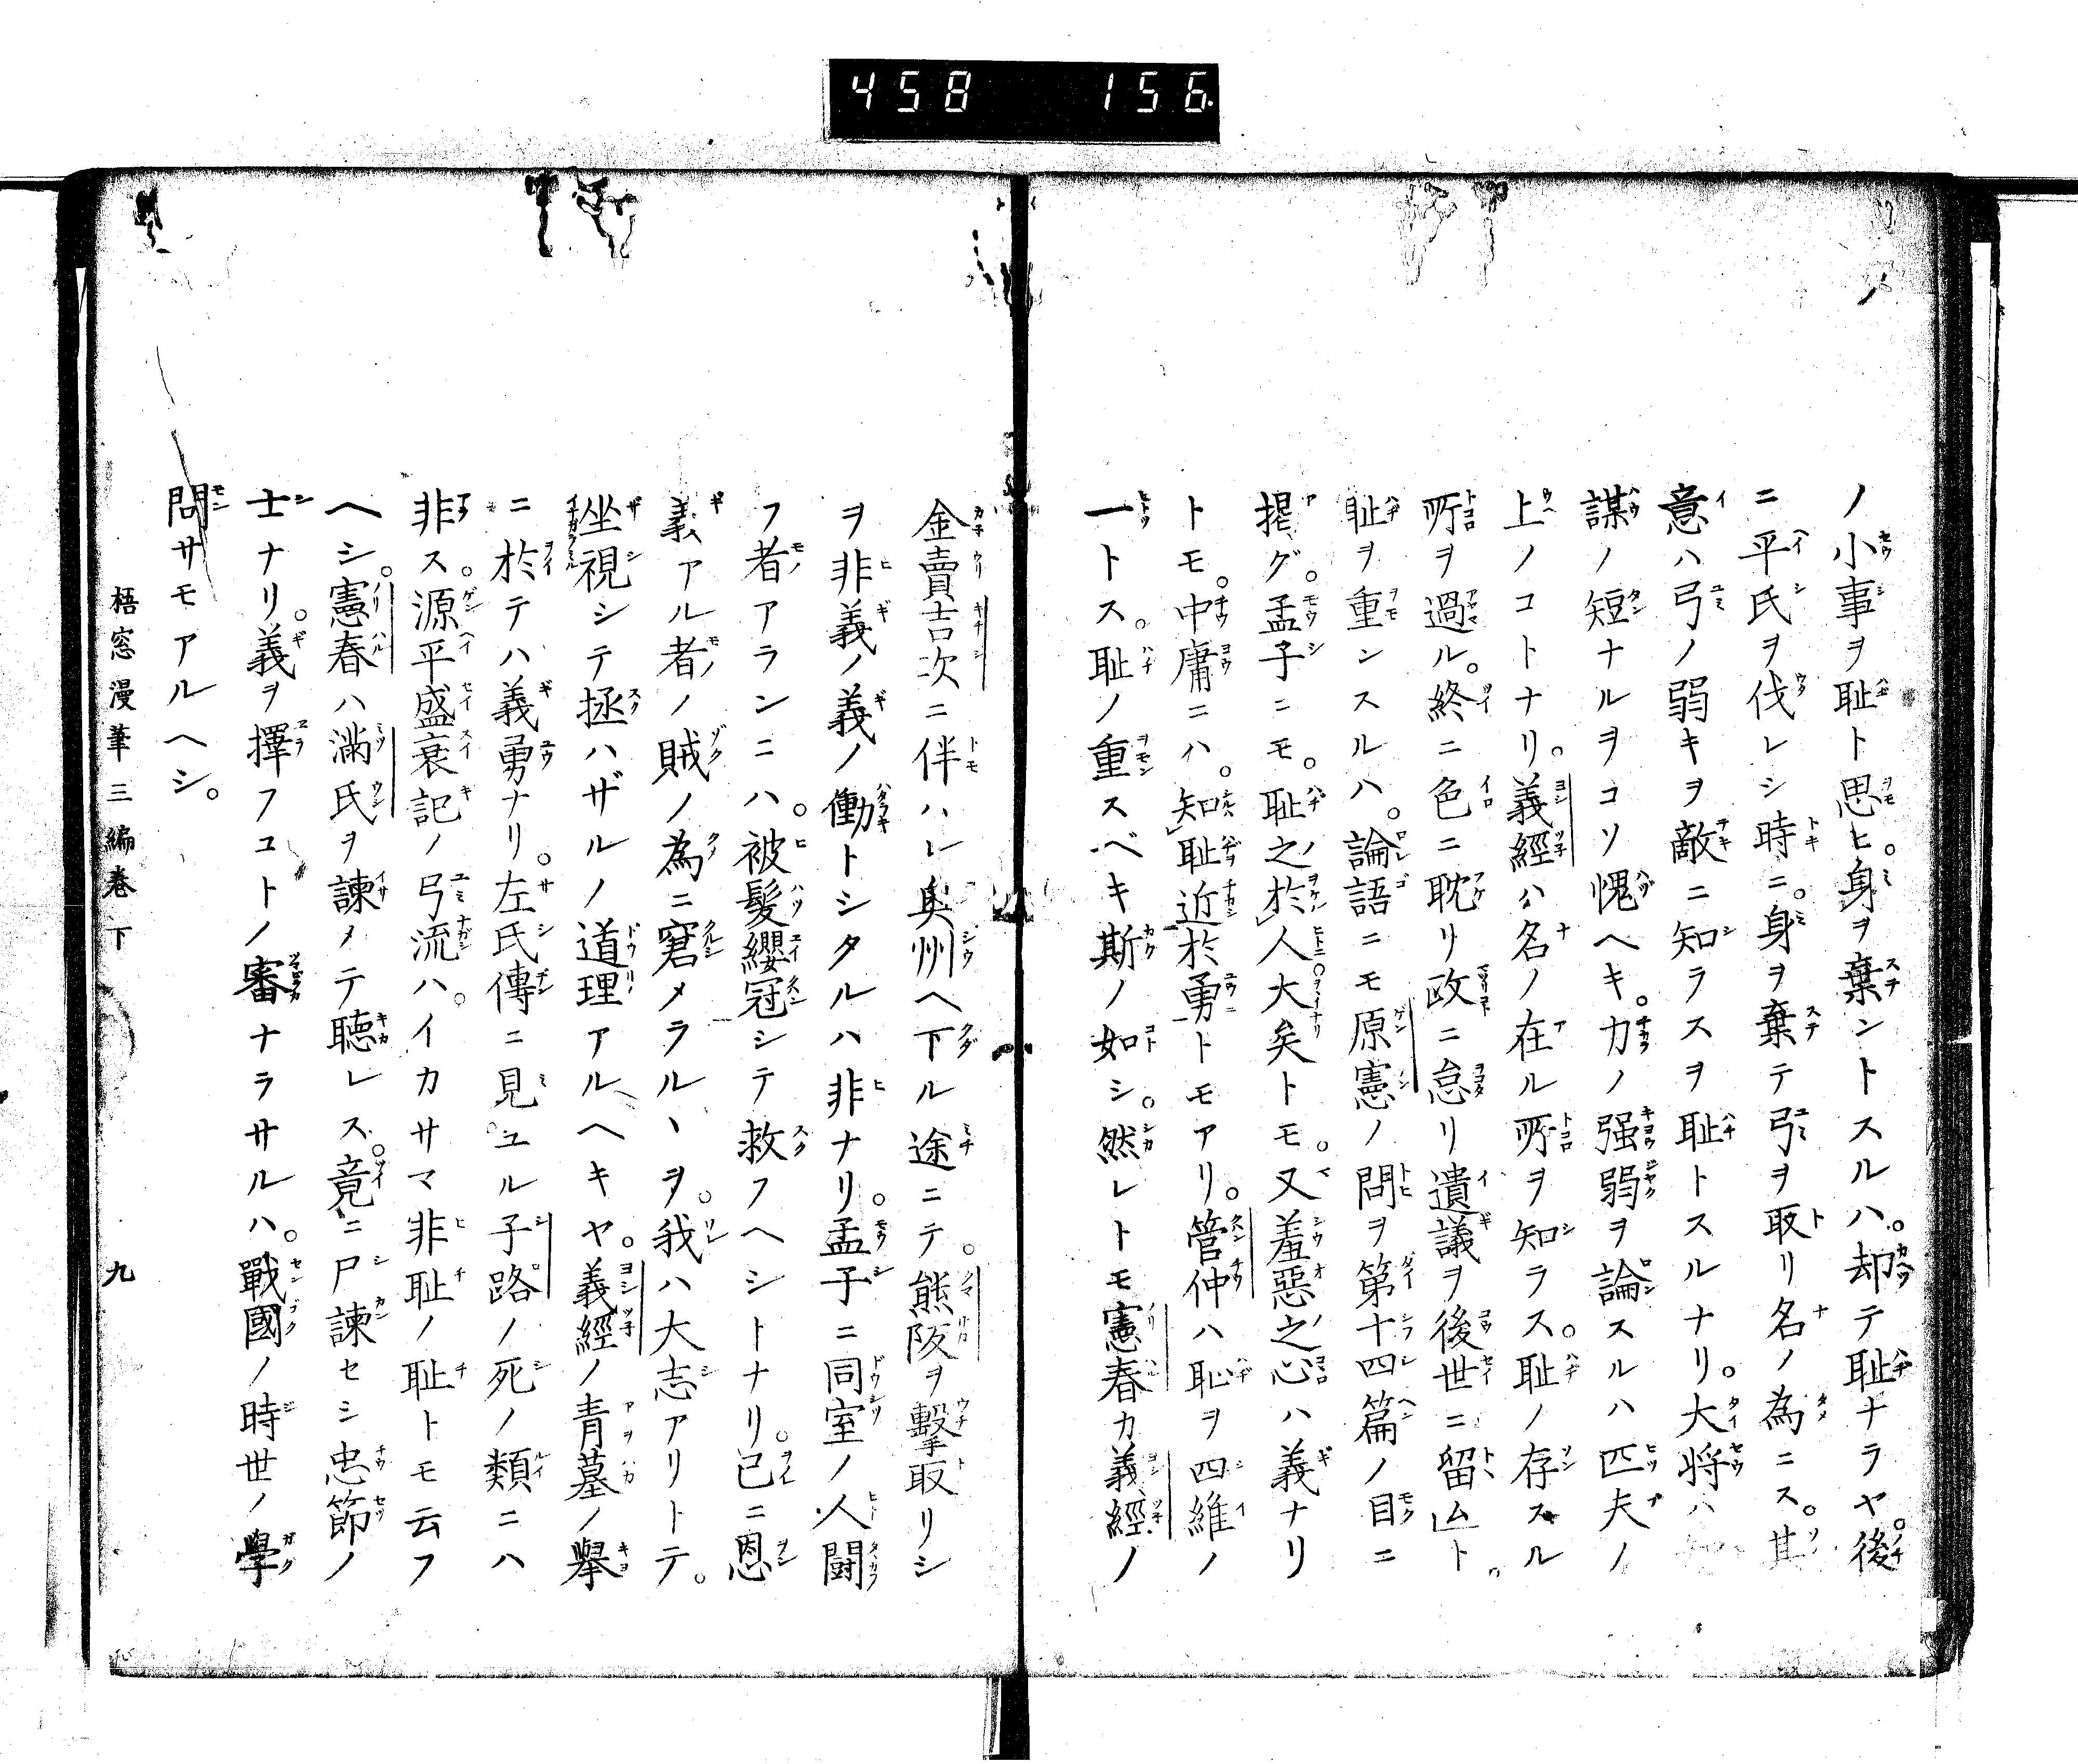 458 156
ノ小事ヲ耻ト思ヒ。身ヲ棄ントスルハ。却テ耻ナラヤ。後
ニ平氏ヲ伐レシ時ニ。身ヲ棄テ弓ヲ取リ名ノ為ニス。其
意ハ弓ノ弱キヲ敵ニ知ラスヲ耻トスルナリ。大将ハ知
謀ノ短ナルヲコソ愧ヘキ。力ノ强弱ヲ論スルハ匹夫ノ
上ノコトナリ。義經ハ名ノ在ル所ヲ知ラス。耻ノ存スル
所ヲ過ル。終ニ色ニ耽リ政ニ怠リ遺議ヲ後世ニ留ム」ト。
耻ヲ重ンスルハ。論語ニモ原憲ノ問ヲ第十四篇ノ目ニ
提グ。孟子ニモ。耻之於人大矣トモ。又羞惡之心ハ義ナリ
トモ。中庸ニハ。知耻近於勇トモアリ。管仲ハ恥ヲ四維ノ
一トス。耻ノ重スベキ斯ノ如シ。然レトモ憲春カ義經ノ
金賣吉次ニ伴ハレ奥州ヘ下ル途ニテ。熊阪ヲ擊取リシ
ヲ非義ノ義ノ働トシタルハ非ナリ。孟子ニ同室ノ人鬪
フ者アランニハ。被髮纓冠シテ救フヘシトナリ。已ニ恩
義アル者ノ賊ノ為ニ窘メラルヽヲ。我ハ大志アリトテ。
坐視シテ拯ハザルノ道理アルヘキヤ。義經ノ青墓ノ擧
ニ於テハ義勇ナリ。左氏傳ニ見ユル子路ノ死ノ類ニハ
非ス。源平盛衰記ノ弓流ハ。イカサマ非耻ノ耻トモ云フ
ヘシ。憲春ハ滿氏ヲ諫メテ聴レス。竟ニ尸諫セシ忠節ノ
士ナリ。義ヲ擇フコトノ審ナラサルハ。戰國ノ時世ノ學
問サモアルヘシ。
梧窓漫筆三編卷下 九